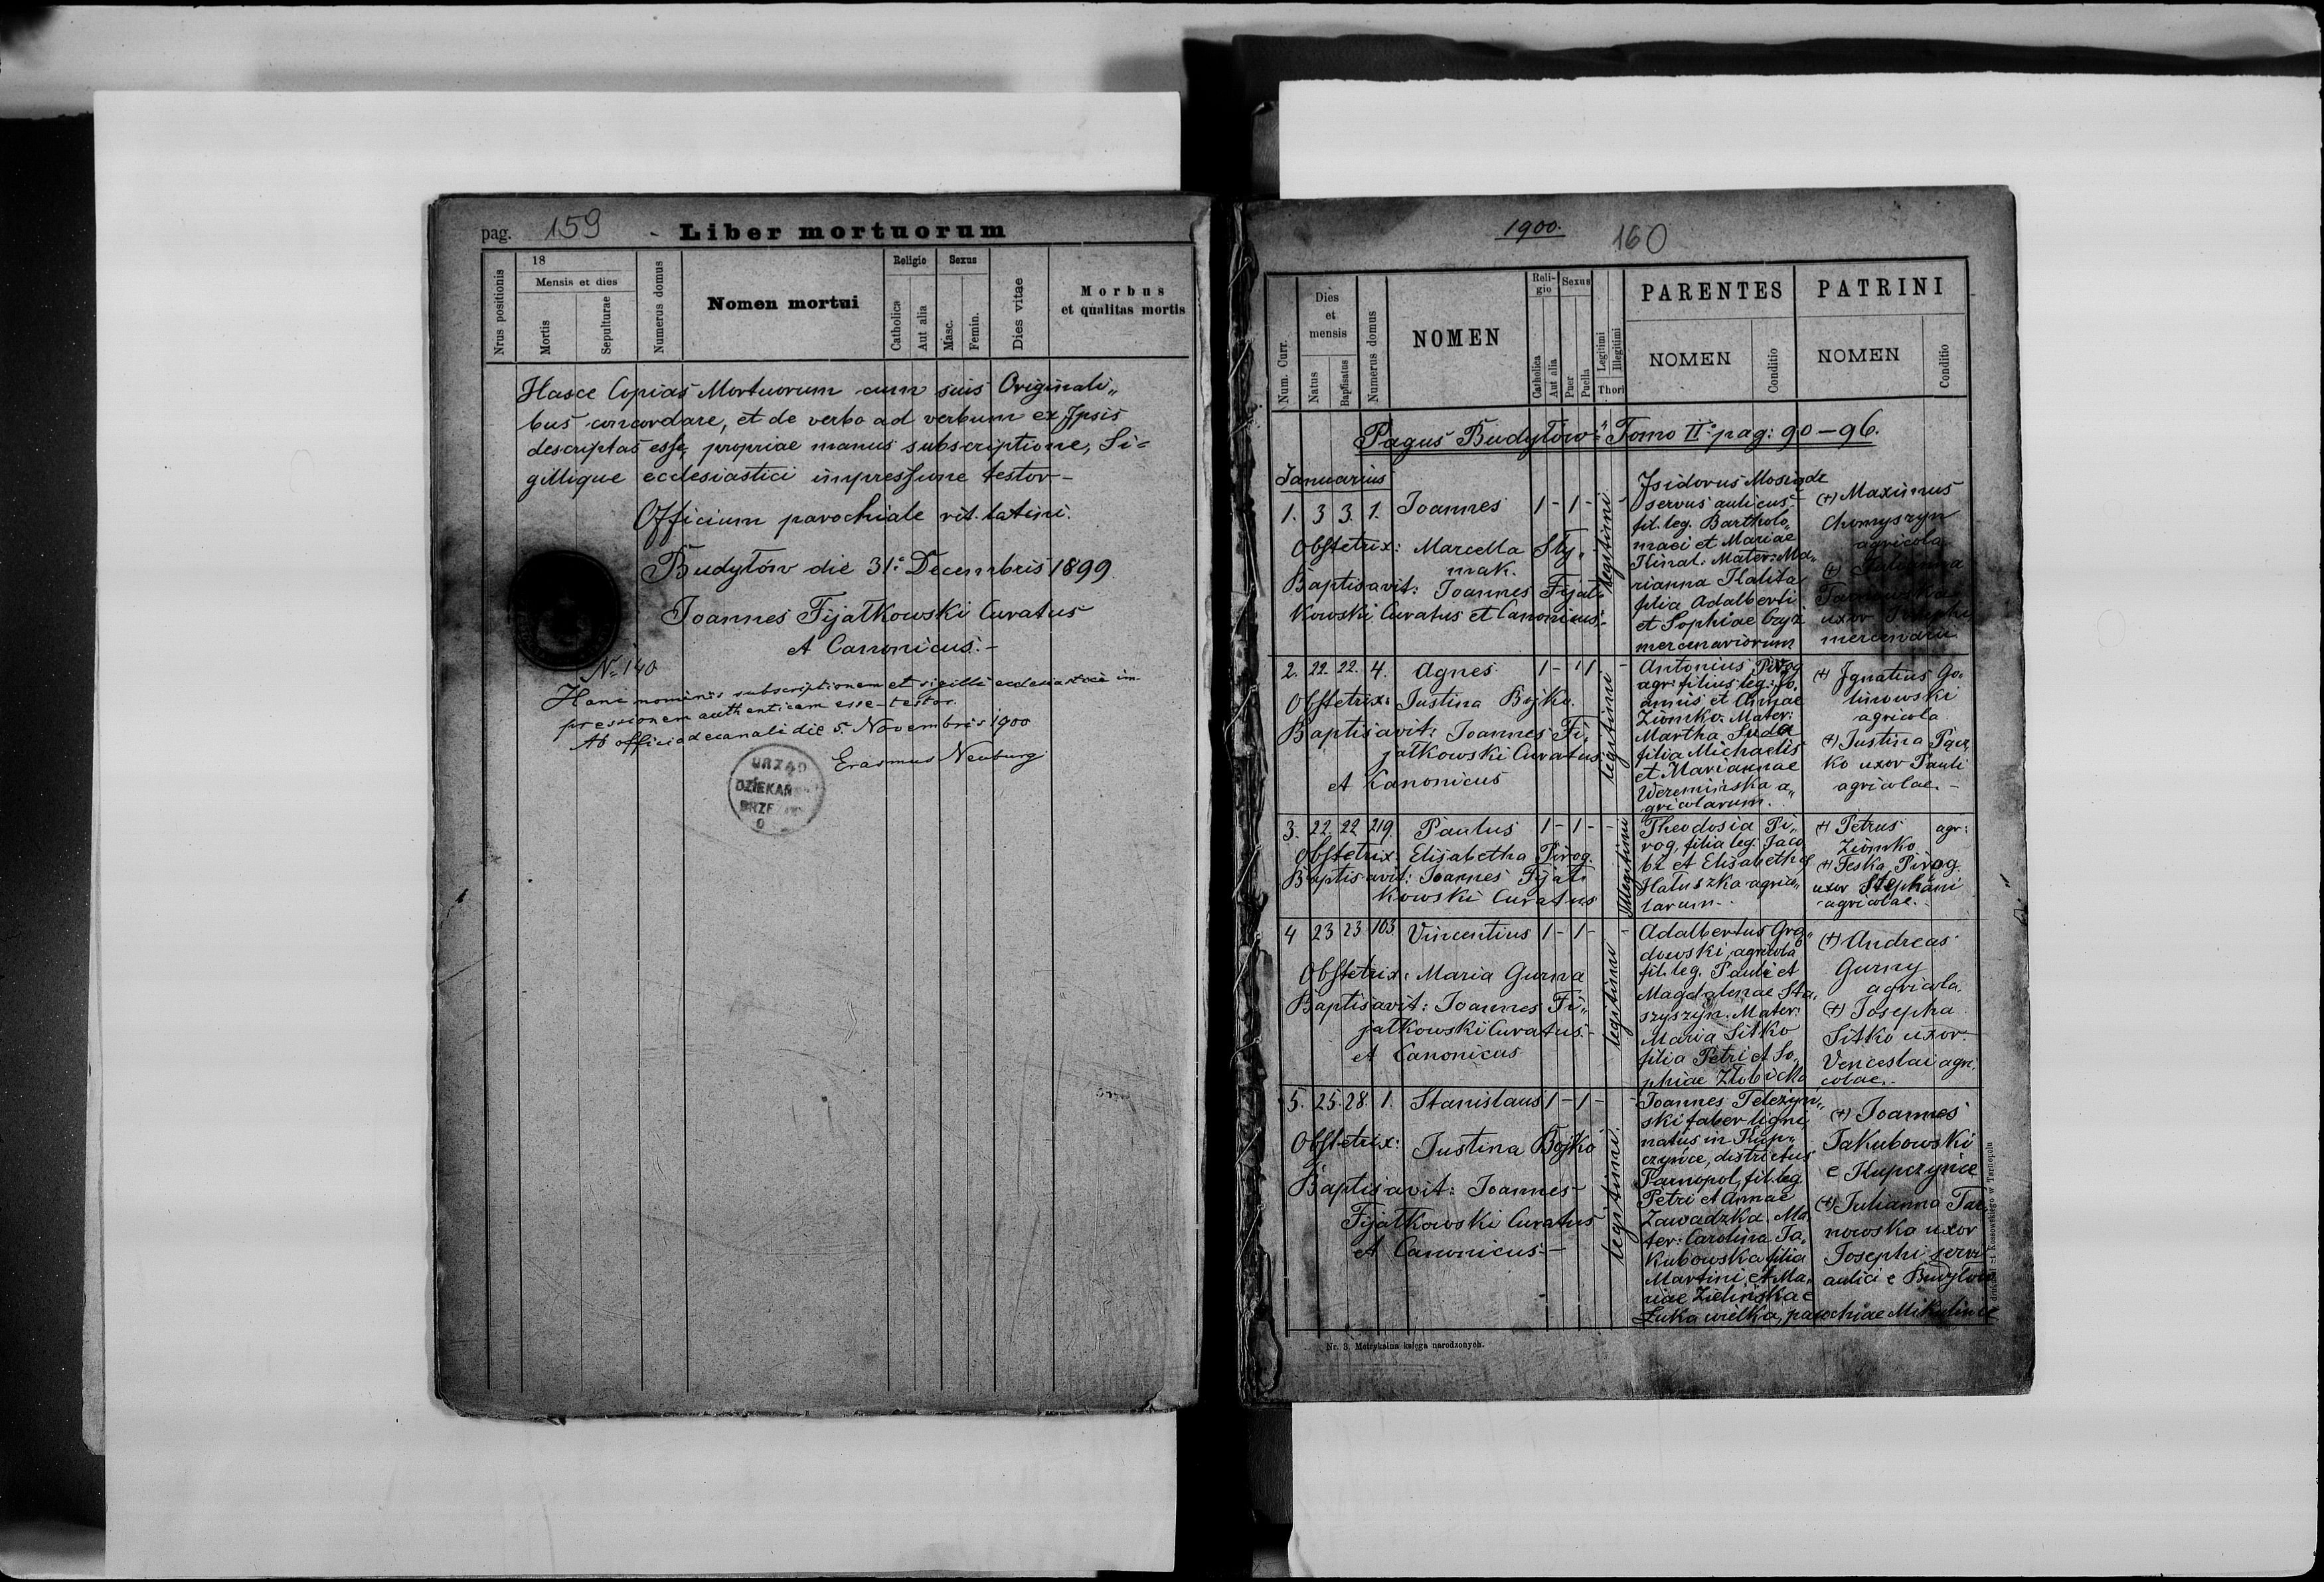 pag. 159 - Liber mortuorum
Nrus positionis
18
Mensis et dies
Mortis
Sepulturae
Numerus domus
Nomen mortui
Religio
Catholica
Aut alia
Sexus
Masc.
Femin.
Dies vitae
Morbus
et qualitas mortis
Hasce Copias Mortuorum cum suis Originali„
bus concordare, et de verbo ad verbum ex Ipsis
descriptas esse, propriae manus subscriptione, Si=
gillique ecclesiastici impressione testor—
Officium parochiale rit. latini.
Budyłów die 31. Decembris 1899.
Joannes Fijałkowski Curatus
et Canonicus.—
N. 140
Hanc nominis subscriptionem et sigilli ecclesiastici im-
pressionem authenticam esse testor.
Ab officio decanali die 5. Novembris 1900
Erasmus Neuburg
URZĄD
1900. 160
Num. Curr.
Dies
et
mensis
Natus
Baptisatus
Numerus domus
NOMEN
Reli-
gio
Catholica
Aut alia
Sexus
Puer
Puella
Legitimi
Illegitimi
Thori
PARENTES
NOMEN
Conditio
PATRINI
NOMEN
Conditio
Pagus Budyłów: Tomo II: pag: 90—96.
Januarius
1. 3 3. 1. Joannes 1 - 1 -
Obstetrix: Marcella Sty„
mak.
Baptisavit: Joannes Fijał„
kowski Curatus et Canonicus.
legitimi
servus aulicus
fil. leg. Bartholo„
maei et Mariae
Mater: Ma„
rianna
filia Adalberti
et Sophiae
mercenariorum
(+) Maximus
Chomyszyn
agricola
mercenarii
2. 22. 22. 4. Agnes 1 - 1 1
Obstetrix: Justina Bojko.
Baptisavit: Joannes Fi„
jałkowski Curatus
et Canonicus
legitimi
Antonius Pirog
agr: filius leg: Jo„
annis et Annae
Ziomko. Mater:
Martha Suda
filia Michaelis
et Mariannae
Wereminska a„
gricolarum.
(+) Ignatius Go„
linowski
agricola
(+) Justina Pącz
ko uxor Pauli
agricolae.—
3. 22. 22 219. Paulus 1 - 1 -
Obstetrix: Elisabetha Pirog.
Baptisavit: Joannes Fijał„
kowski Curatus
Illegitimi
Theodosia Pi„
rog, filia leg. Jaco
bi et Elisabethae
Hałuszka agrico„
larum.
(+) Petrus agr:
Ziomko
(+) Teska Pirog
uxor Stephani
agricolae.
4 23 23 103 Vincentius 1 - 1 -
Obstetrix: Maria Gurna
Baptisavit: Joannes Fi„
jałkowski Curatus.—
et Canonicus
legitimi
Adalbertus Grą„
dowski, agricola
fil. leg. Pauli et
Magdalenae Sta„
szyszyn. Mater:
Maria Sitko
filia Petri et So„
phiae Złobicka
(+) Andreas
Gurny
agricola.
(+) Josepha
Sitko uxor
Venceslai agri„
colae.—
5. 25. 28. 1. Stanislaus 1 - 1 -
Obstetrix: Justina Bojko
Baptisavit: Joannes
Fijałkowski Curatus
et Canonicus—
legitimi.
Joannes Teleżyń„
ski faber ligni
natus in Kup„
czyńce, districtus
Tarnopol, fil. leg.
Petri et Annae
Zawadzka. Ma„
ter: Carolina Ja„
kubowska filia
Martini et Ma„
riae Zielińska e
Łuka wielka, parochiae Mikulińce
(+) Joannes
Jakubowski
e Kupczyńce
(+) Julianna Tar„
nowska uxor
Josephi servi
aulici e Budyłów
Nr. 3. Metrykalna księga narodzonych.